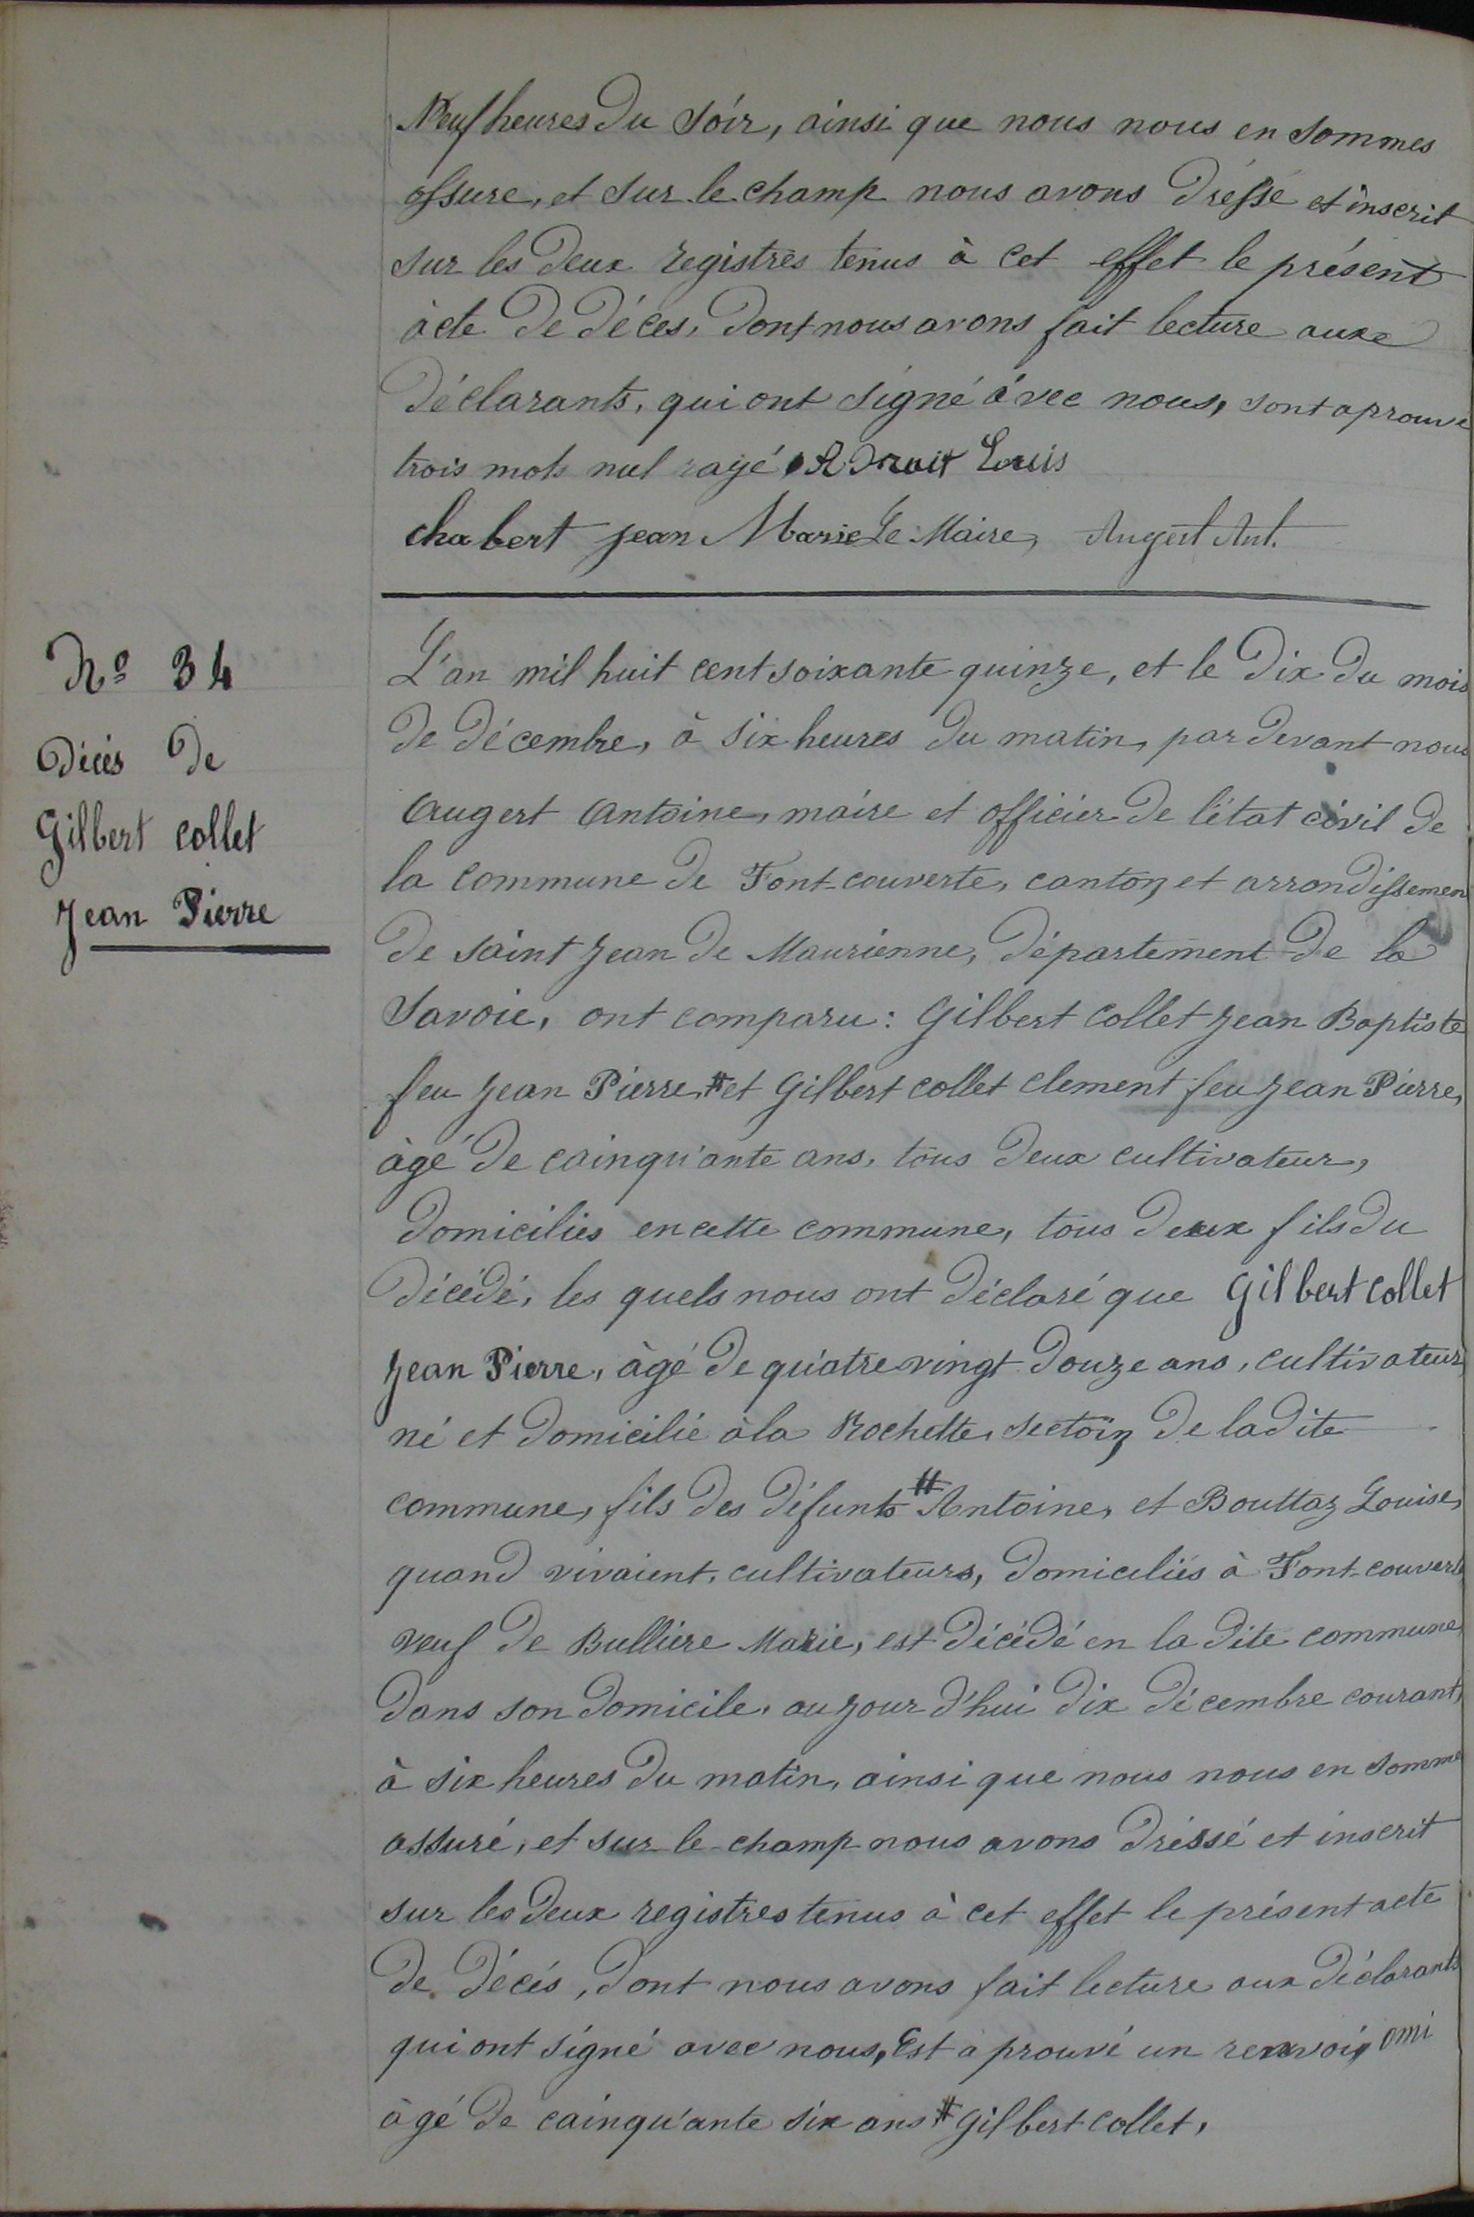 Neuf heures du soir, ainsi que nous nous en sommes
assure, et sur le champ nous avons dréssé et inscrit
sur les deux registres tenus à cet effet le présent
àcte de déces, dont nous avons fait lecture aux
déclarants, qui ont signé àvec nous, sont aprouvé
trois mots nul rayé, Louis
chabert jean Marie Le Maire, Augert Ant.
Nº 34
Décés de
Gilbert collet
Jean Pierre
L'an mil huit cent soixante quinze, et le dix du mois
de décembre, à six heures du matin, par devant nous
Augert Antoine, maire et officier de l'état civil de
la commune de Font-couverte, canton et arrondissemen
de saint Jean de Maurienne, département de la
Savoie, ont comparu: Gilbert Collet Jean Baptiste
feu Jean Pierre, # et Gilbert collet clement feu Jean Pierre,
àgé de cainqu'ante ans, tous deux cultivateur,
domiciliés en cette commune, tous deux fils du
décédé, les quels nous ont déclaré que Gilbert collet
Jean Pierre, àgé de quatre vingt douze ans, cultivateur
né et domicilié à la Rochette, sectoin de la dite
commune, fils des défunts # Antoine, et Bouttaz Louise,
quand vivaient, cultivateurs, domiciliés à Font-couverte
veuf de Bulliere Marie, est décédé en la dite commune,
dans son domicile, au jour d'hui dix décembre courant,
à six heures du matin, ainsi que nous nous en somme
assuré, et sur le champ nous avons dréssé et inscrit
sur les deux registres tenus à cet effet le présent acte
de décés, dont nous avons fait lecture aux déclarants
qui ont signé avec nous, Est a prouvé un renvoi, omi
àgé de cainqu'ante six ans # Gilbert collet,